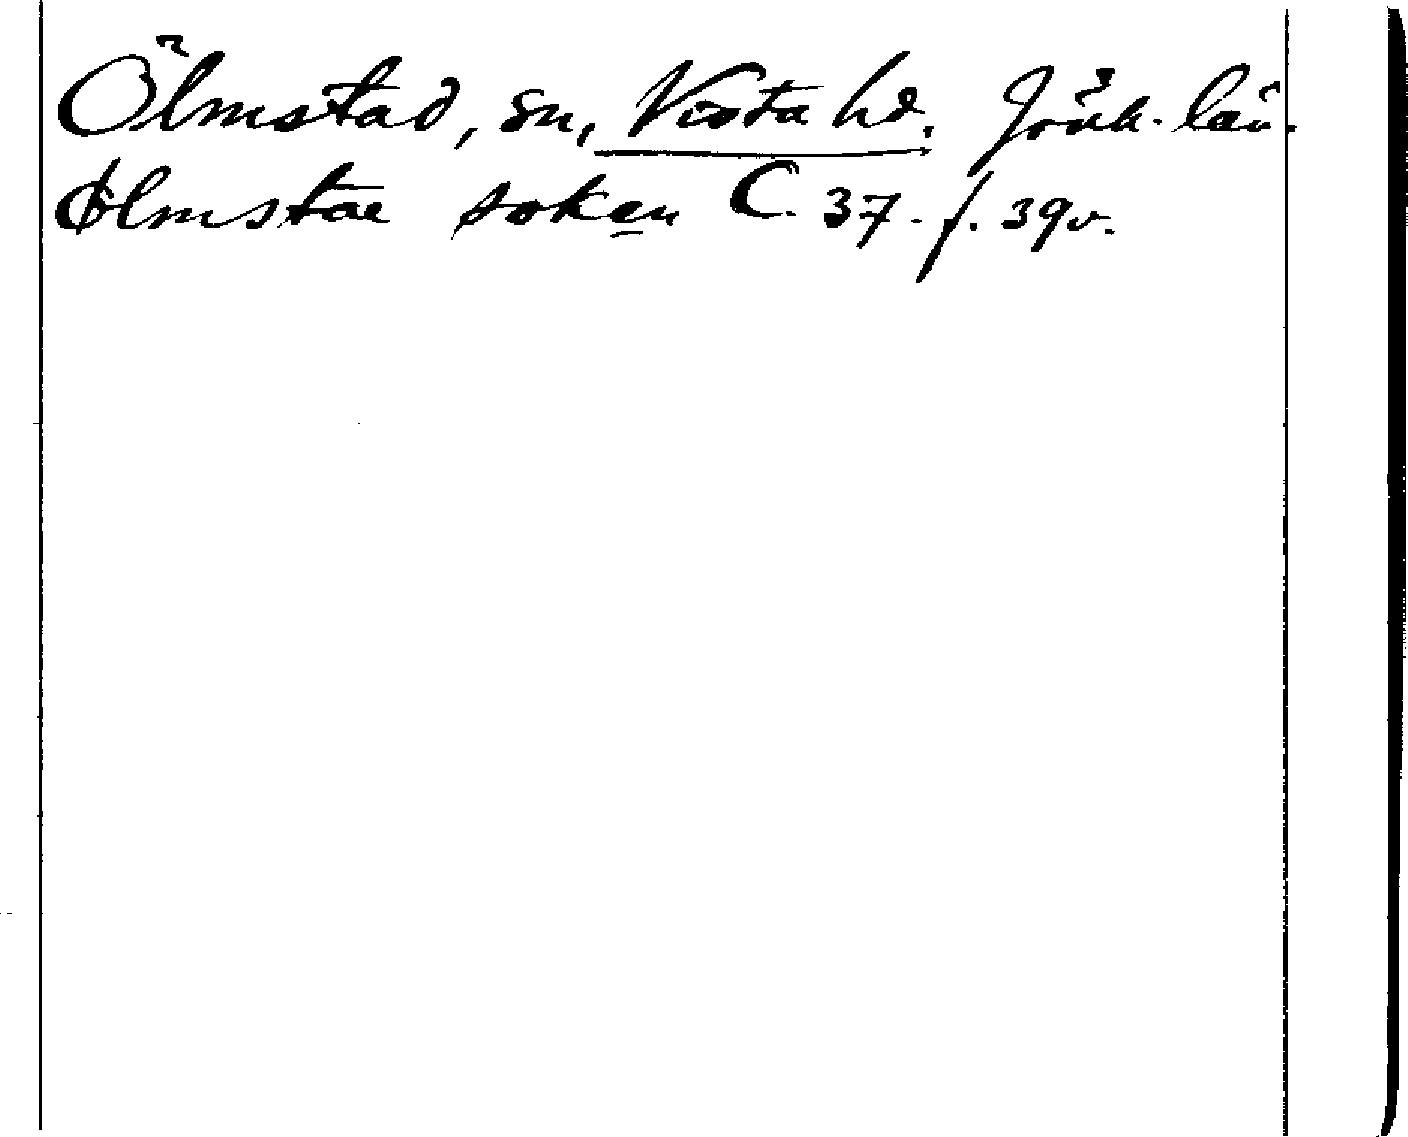 Ölmstad, sn, Vista hd. Jönk. län.
Ølmstae soken C. 37. f. 39v.